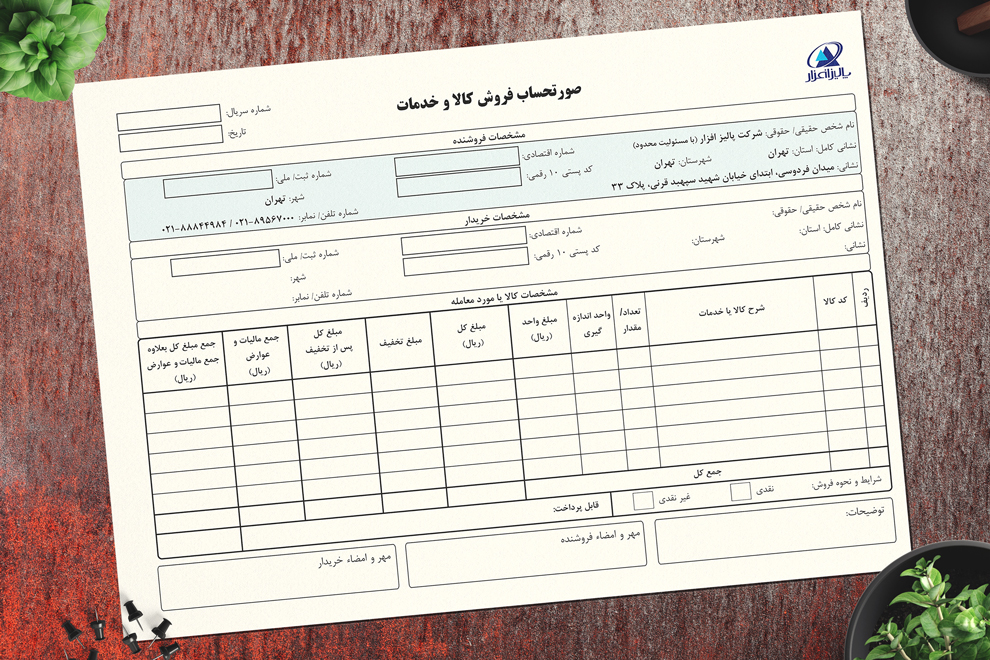 پالیزافزار
صورتحساب فروش کالا و خدمات
شماره سریال:
تاریخ:
مشخصات فروشنده
نام شخص حقیقی/ حقوقی: شرکت پالیز افزار (با مسئولیت محدود) شماره اقتصادی: شماره ثبت/ ملی:
نشانی کامل: استان: تهران شهرستان: تهران کد پستی ۱۰ رقمی: شهر: تهران
نشانی: میدان فردوسی، ابتدای خیابان شهید سپهبد قرنی، پلاک ۳۳ شماره تلفن/ نمابر: ۰۲۱-۸۸۸۴۴۹۸۴ / ۰۲۱-۸۹۵۶۷۰۰۰
مشخصات خریدار
نام شخص حقیقی/ حقوقی: شماره اقتصادی: شماره ثبت/ ملی:
نشانی کامل: استان: شهرستان: کد پستی ۱۰ رقمی: شهر:
نشانی: شماره تلفن/ نمابر:
مشخصات کالا یا مورد معامله
ردیف
کد کالا
شرح کالا یا خدمات
تعداد/
مقدار
واحد اندازه
گیری
مبلغ واحد
(ریال)
مبلغ کل
(ریال)
مبلغ تخفیف
مبلغ کل
پس از تخفیف
(ریال)
جمع مالیات و
عوارض
(ریال)
جمع مبلغ کل بعلاوه
جمع مالیات و عوارض
(ریال)
جمع کل
شرایط و نحوه فروش: نقدی غیر نقدی قابل پرداخت:
توضیحات:
مهر و امضاء فروشنده
مهر و امضاء خریدار